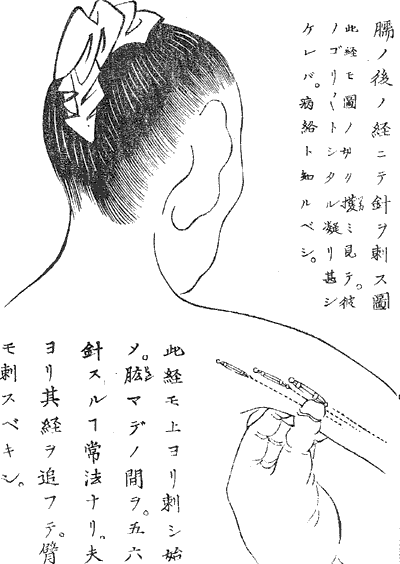 臑ノ後ノ経ニテ針ヲ刺ス圖
此経モ圖ノ ミ見テ。彼
ノゴリ〱トシタル凝リ甚シ
ケレバ。病絡ト知ルベシ。
此経モ上ヨリ刺シ始
メ。肱マデノ間ヲ。五六
針スルヿ常法ナリ。夫
ヨリ其経ヲ追フテ。臂
モ刺スベキ